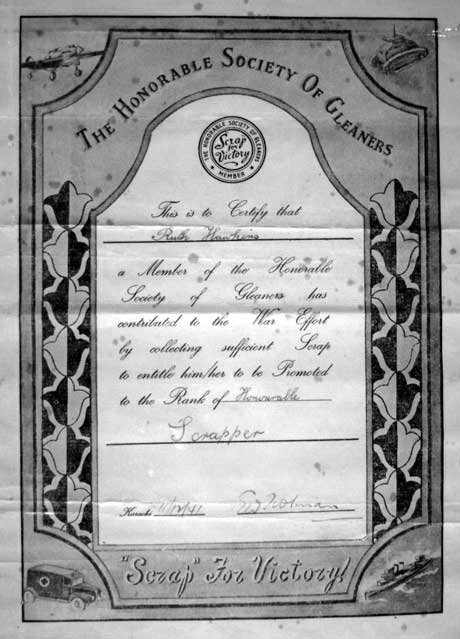 THE HONORABLE SOCIETY OF GLEANERS
THE HONORABLE SOCIETY OF GLEANERS
Scrap
for
Victory
MEMBER
This is to Certify that
Ruth Hawkins
a Member of the Honorable
Society of Gleaners has
contributed to the War Effort
by collecting sufficient Scrap
to entitle him/her to be Promoted
to the Rank of Honourable
Scrapper
Karachi
"Scrap" For Victory!